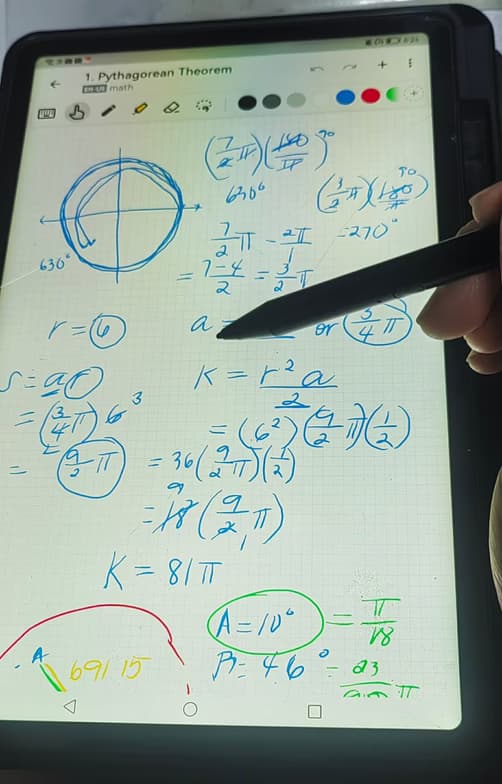 1. Pythagorean Theorem
EN-US math
(7/2 π)(180/π) 90
630°
(3/2 π)(180/π) 90
= 270°
7/2 π - 2π/1
= 7-4/2 = 3/2 π
630°
r = 6
a = or 3/4 π
S = ar
= (3/4 π) 6 3
= 9/2 π
K = r² a/2
= (6²)(9/2 π)(1/2)
= 36(9/2 π)(1/2)
= 18(9/2 π) 9 1
K = 81π
A = 10° = π/18
B = 46° = 23/ π
A
691 15